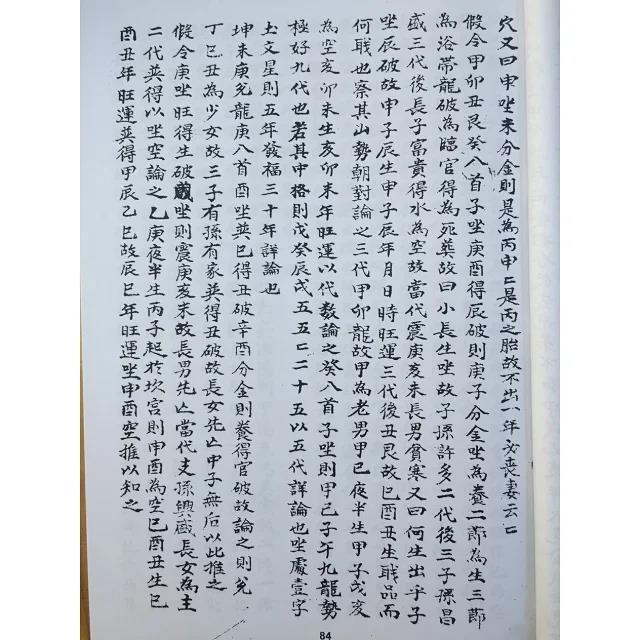 穴又曰申坐未分金則是為丙申二是丙之胎故不出八年必喪妻云亡
假令甲卯丑艮癸八首子坐庚酉得辰破則庚子分金坐為養二節為生三節
為浴帶龍破為臨官得為死葬故曰小長生坐故子孫許多二代後三子孫昌
盛三代後長子富貴得水為空故當代震庚亥未長男貧寒又曰何生出乎子
坐辰破故申子辰生申子辰年月日時旺運三代後丑艮故巳酉丑生職品而
何職也察其山勢朝對論之三代甲卯龍故甲為老男甲己夜半生甲子戌亥
為空亥卯未生亥卯未年旺運以代数論之癸八首子坐則甲己子午九龍勢
極好九代也若其中格則戊癸辰戌五五二二十五以五代詳論也坐處壹字
土文星則五年發福三十年詳論也
坤未庚兌龍庚八首酉坐巽巳得丑破辛酉分金則養得官破故論之則兌
丁巳丑為少女故三子有孫有家巽得丑破故長女先亡申子無后以此推之
假令庚坐旺得生破坐則震庚亥未故長男先亡當代支孫興盛長女為主
二代巽得以坐空論之乙庚夜半生丙子起於坎宮則申酉為空巳酉丑生巳
酉丑年旺運巽得甲辰乙巳故辰巳年旺運坐申酉空推以知之
84